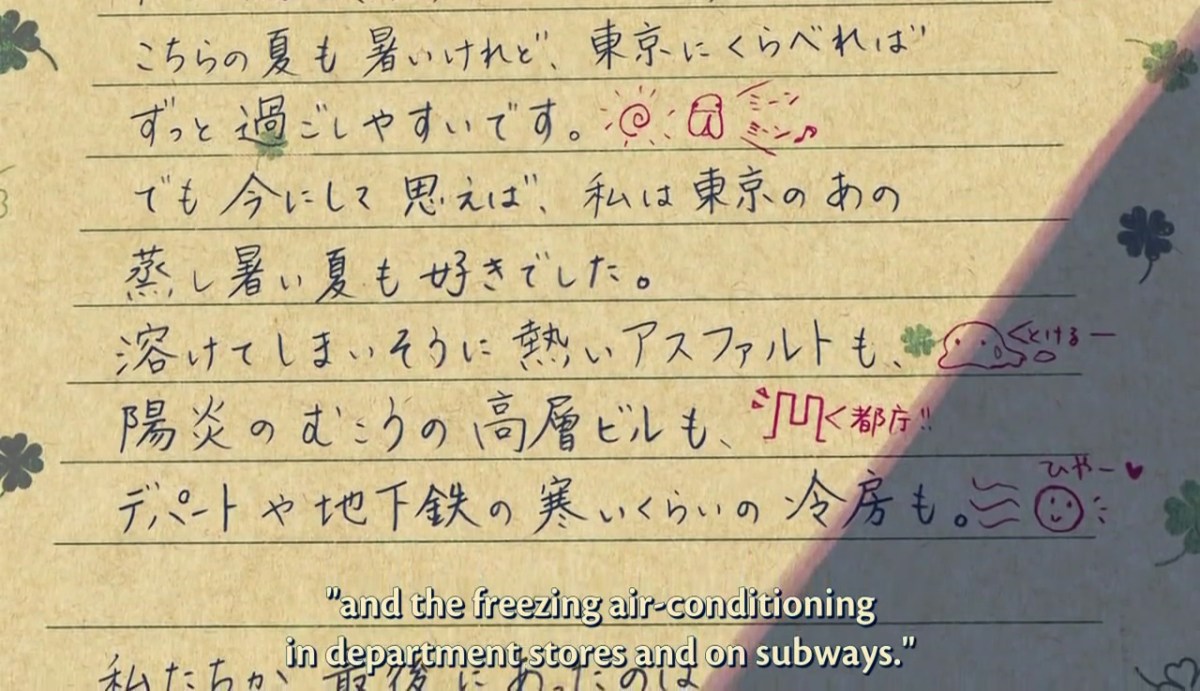 こちらの夏も暑いけれど、東京にくらべれば
ずっと過ごしやすいです。 ミーン ミーン♪
でも今にして思えば、私は東京のあの
蒸し暑い夏も好きでした。
溶けてしまいそうに熱いアスファルトも、 とけるー
陽炎のむこうの高層ビルも、 都庁!!
デパートや地下鉄の寒いくらいの冷房も。 ひやー♥
"and the freezing air-conditioning
in department stores and on subways."
私たちが最後にあったのは